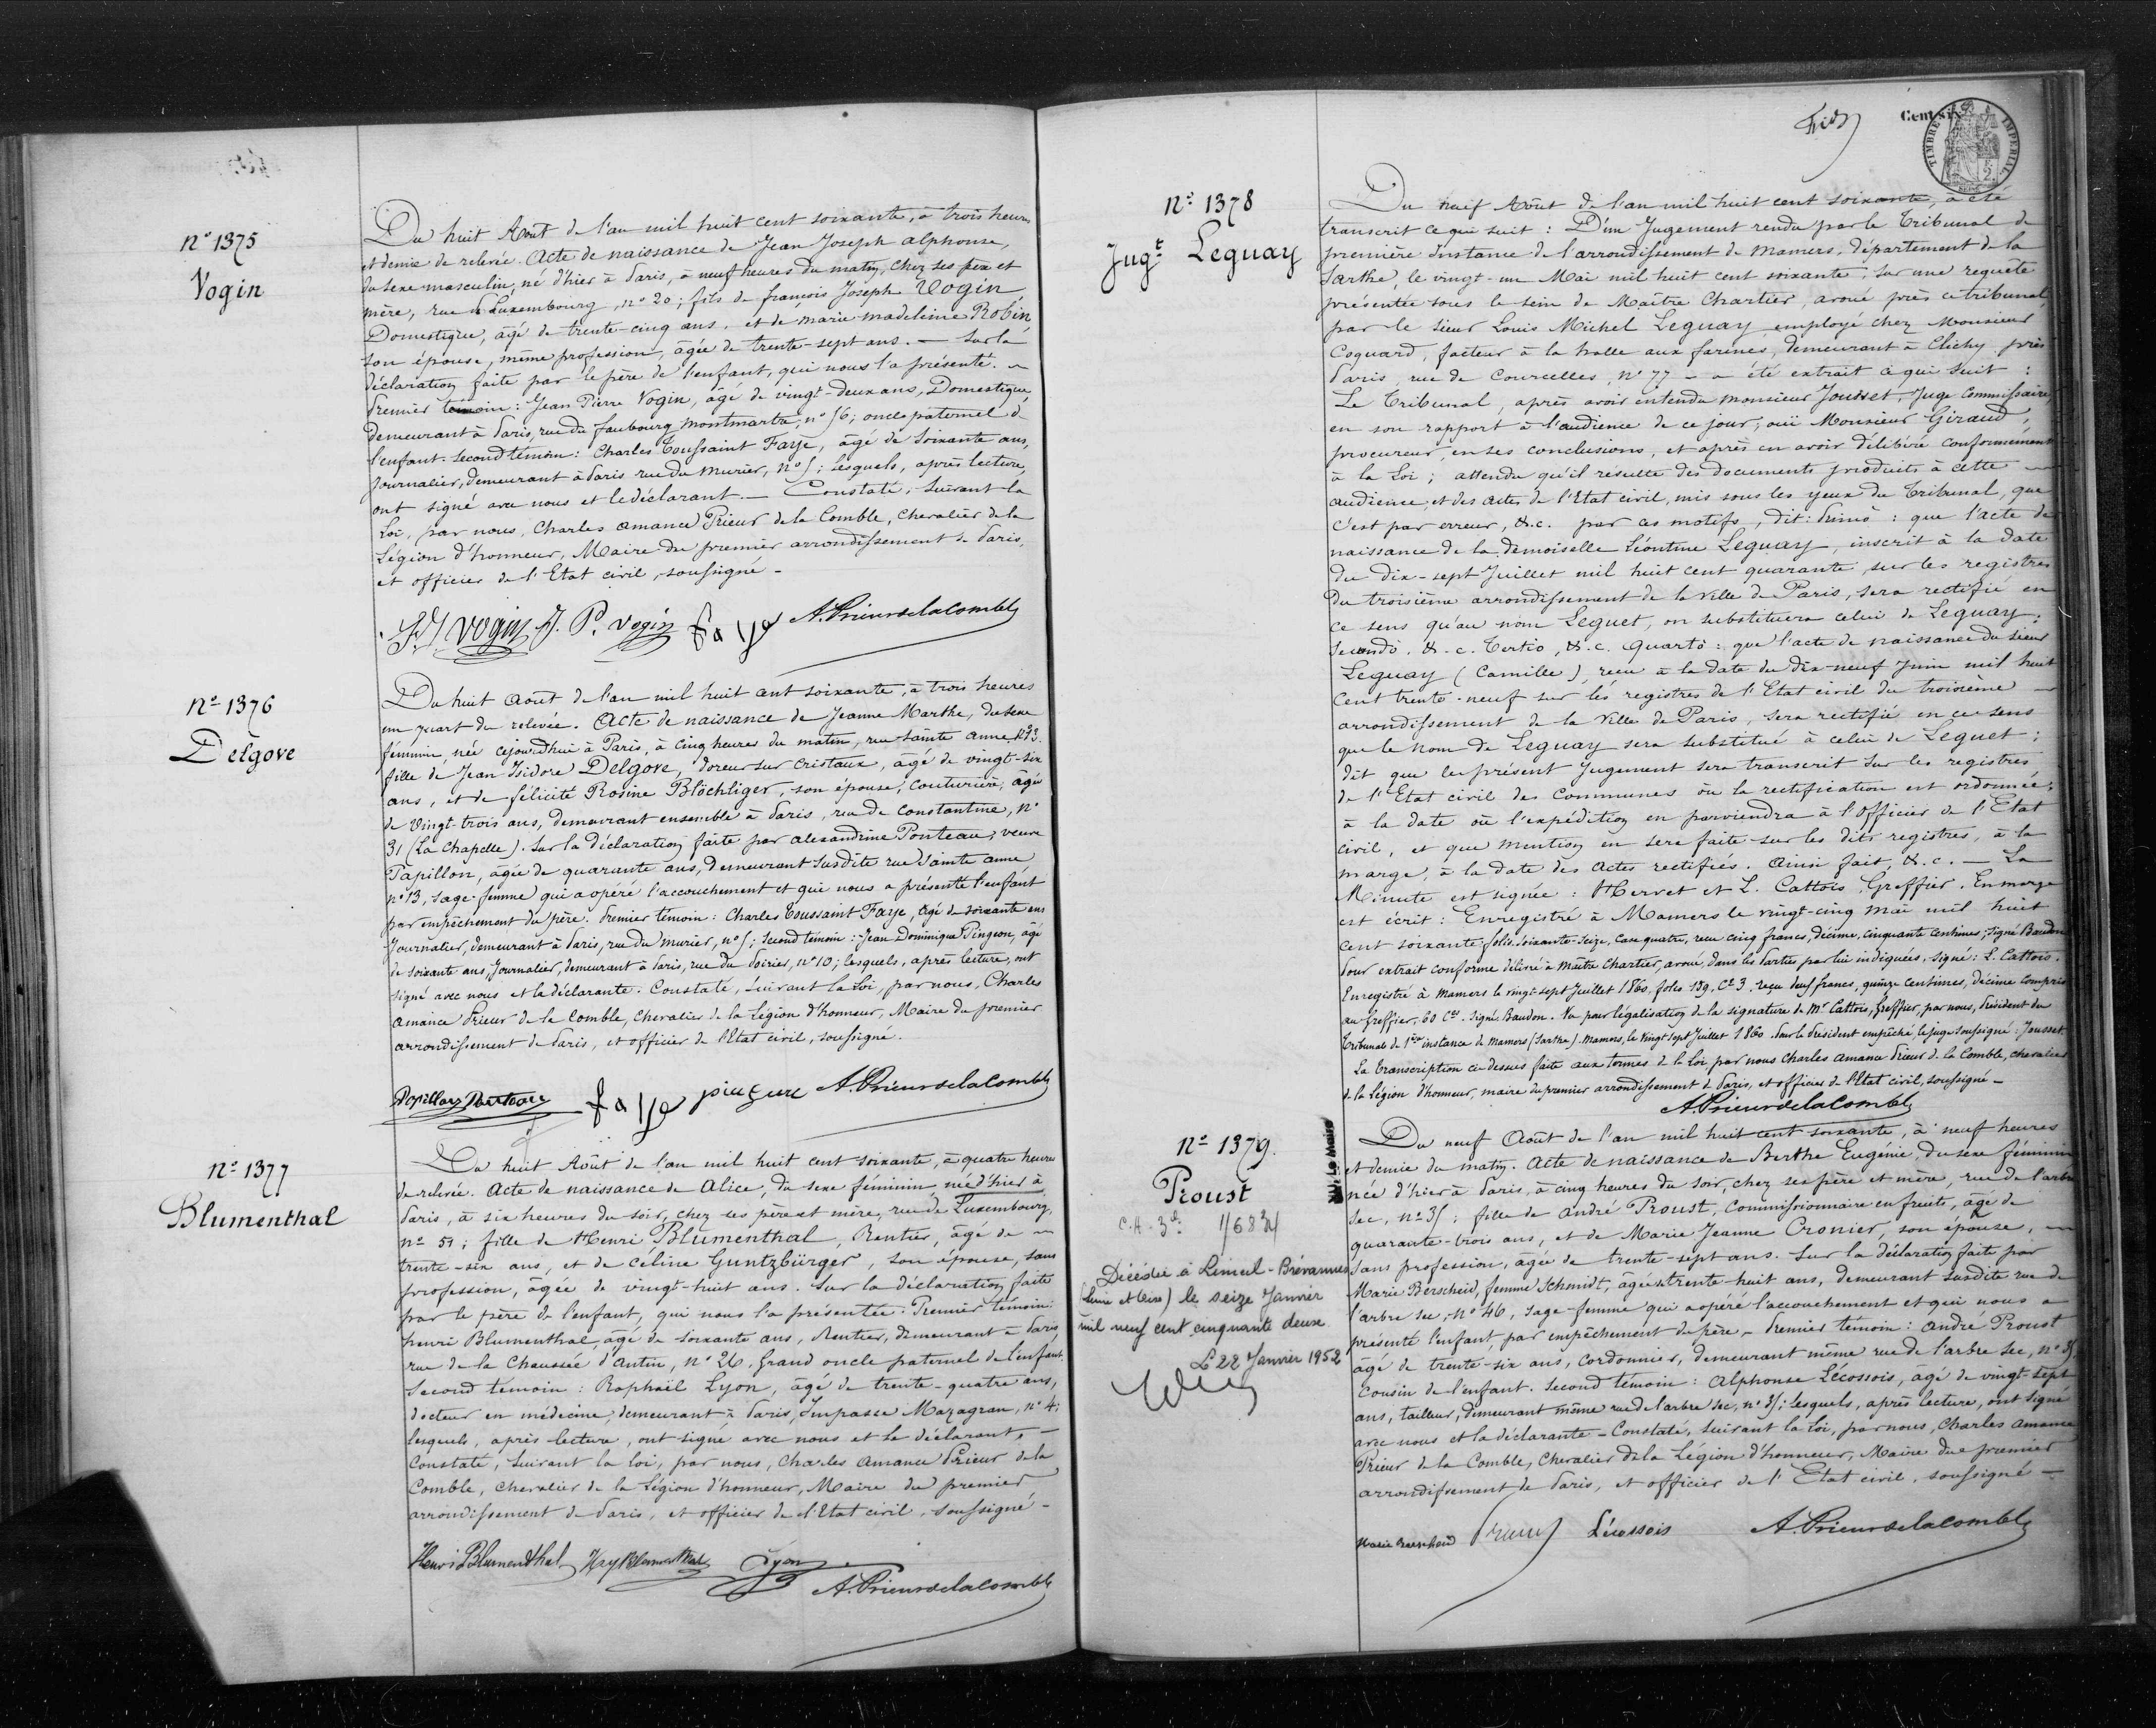 N° 1375
Vogin
Du huit Août de l'an mil huit cent soixante, à trois heures
et demie de relevée. Acte de naissance de Jean Joseph alphonse,
du sexe masculin, né d'hier à Paris, à neuf heures du matin, chez ses père et
mère, rue de Luxembourg, n° 20; fils de françois Joseph Vogin
Domestique, âgé de trente-cinq ans, et de marie madeleine Robin
son épouse, même profession, âgée de trente-sept ans. — Sur la
déclaration faite par le père de l'enfant, qui nous l'a présenté.
Premier témoin: Jean Pierre Vogin, âgé de vingt-deux ans, Domestique,
demeurant à Paris, rue du faubourg montmartre, n° 56; oncle paternel de
l'enfant. Second témoin: Charles Toussaint Faÿe, âgé de soixante ans,
Journalier, demeurant à Paris rue du Murier, n° 5; lesquels, après lecture,
ont signé avec nous et le déclarant. — Constaté, Suivant la
Loi, par nous, Charles amance Prieur de la Comble, Chevalier de la
Légion d'honneur, Maire du premier arrondissement de Paris,
et officier de l'Etat civil, soussigné -
Vogin J. P. Vogin faÿe A. Prieur de la Comble
N° 1376
Delgove
Du huit Août de l'an mil huit cent soixante, à trois heures
un quart de relevée. Acte de naissance de Jeanne Marthe, du sexe
féminin, née cejourd'hui à Paris, à cinq heures du matin, rue sainte anne, n° 13.
fille de Jean Isidore Delgove, doreur sur cristaux, âgé de vingt-six
ans, et de félicité Rosine Blöchliger, son épouse, Couturière, âgée
de vingt-trois ans, demeurant ensemble à Paris, rue de Constantine, n°
31 (La Chapelle). Sur la déclaration faite par alexandrine Ponteau, veuve
Papillon, âgée de quarante ans, demeurant susdite rue Sainte anne
n° 13, sage-femme qui a opéré l'accouchement et qui nous a présenté l'enfant
par empêchement du père. Premier témoin: Charles Toussaint Faÿe, âgé de soixante ans
Journalier, demeurant à Paris, rue du murier, n° 5; Second témoin: Jean Dominique Pingeon, âgé
de soixante ans, Journalier, demeurant à Paris, rue du Poirier, n° 10; lesquels, après lecture, ont
signé avec nous et la déclarante. Constaté, suivant la Loi, par nous, Charles
amance Prieur de la Comble, Chevalier de la Légion d'honneur, Maire du premier
arrondissement de Paris, et officier de l'Etat civil, soussigné.
faÿe A. Prieur de la Comble
N° 1377
Blumenthal
Du huit Août de l'an mil huit cent soixante, à quatre heures
de relevée. Acte de naissance de Alice, du sexe féminin née d'hier à
Paris, à six heures du soir, chez ses père et mère, rue de Luxembourg,
n° 51; fille de Henri Blumenthal, Rentier, âgé de
trente-six ans, et de céline Guntzbürger, son épouse, sans
profession, âgée de vingt-huit ans. Sur la déclaration faite
par le père de l'enfant, qui nous l'a présentée. Premier témoin:
henri Blumenthal, âgé de soixante ans, Rentier, demeurant à Paris,
rue de la Chaussée d'Antin, n° 26, Grand oncle paternel de l'enfant.
Second témoin: Raphaël Lyon, âgé de trente-quatre ans,
docteur en médecine, demeurant à Paris, Impasse Mazagran, n° 4;
lesquels, après lecture, ont signé avec nous et le déclarant, —
Constaté, suivant la loi, par nous, Charles amance Prieur de la
Comble, chevalier de la Légion d'honneur, Maire du premier
arrondissement de Paris, et officier de l'Etat civil, soussigné -
Henri Blumenthal Hry Blumenthal Lyon
A. Prieur de la Comble
Cent six
TIMBRE IMPERIAL
N° 1378
Jugt Leguay
Du neuf Août de l'an mil huit cent soixante, a été
transcrit ce qui suit: D'un Jugement rendu par le Tribunal de
première Instance de l'arrondissement de Mamers, département de la
Sarthe, le vingt-un Mai mil huit cent soixante, sur une requête
présentée sous le sein de Maître Chartier, avoué près ce tribunal
par le sieur Louis Michel Leguay employé chez Monsieur
Coquard, facteur à la halle aux farines, demeurant à Clichy près
Paris, rue de Courcelles, n° 77 — a été extrait ce qui suit:
Le Tribunal, après avoir entendu monsieur Jousset, Juge Commissaire,
en son rapport à l'audience de ce jour, ouï Monsieur Giraud,
procureur, en ses conclusions, et après en avoir délibéré conformément
à la Loi; attendu qu'il résulte des documents produits à cette
audience, et des actes de l'Etat civil, mis sous les yeux du Tribunal, que
C'est par erreur, &.c. par ces motifs, dit: Primò: que l'acte de
naissance de la demoiselle Léontine Leguay, inscrit à la date
du dix-sept Juillet mil huit cent quarante, sur les registres
du troisième arrondissement de la ville de Paris, sera rectifié en
ce sens qu'au nom Leguet, on substituera celui de Leguay;
Secundò. &.c. Tertio, &.c. Quartò: que l'acte de naissance du sieur
Leguay (Camille), reçu à la date du dix-neuf Juin mil huit
cent trente-neuf sur les registres de l'Etat civil du troisième
arrondissement de la Ville de Paris, sera rectifié en ce sens
que le nom de Leguay sera substitué à celui de Leguet;
dit que le présent Jugement sera transcrit sur les registres
de l'Etat civil des Communes où la rectification est ordonnée,
à la date où l'expédition en parviendra à l'Officier de l'Etat
civil, et que mention en sera faite sur les dits registres, à la
marge, à la date des actes rectifiés. Ainsi fait, &.c. — La
Minute est signée: Hervet et L. Cattois, Greffier. En marge
est écrit: Enregistré à Mamers le vingt-cinq mai mil huit
cent soixante, folio soixante-seize, Case quatre, reçu cinq francs, décime, cinquante centimes; signé Baudon
Pour extrait conforme délivré à Maître Chartier, avoué, dans les parties par lui indiquées, signé: L. Cattois.
Enregistré à Mamers le vingt-sept Juillet 1860, folio 139, Ce 3. reçu deux francs, quinze centimes, décime compris
au Greffier, 60 Ces. signé Baudon. Vu pour légalisation de la signature de Mr Cattois, Greffier, par nous, Président du
Tribunal de 1ère instance de Mamers (Sarthe). Mamers, le vingt sept Juillet 1860. Pour le Président empêché, le Juge soussigné: Jousset.
La transcription ci-dessus faite aux termes de la Loi par nous Charles amance Prieur de la Comble, chevalier
de la Légion d'honneur, maire du premier arrondissement de Paris, et officier de l'Etat civil, soussigné —
A. Prieur de la Comble
N° 1379.
Proust
Décédée à Limeil-Brévannes
(Seine et Oise) le seize Janvier
mil neuf cent cinquante deux
Le 22 Janvier 1952
Du neuf Août de l'an mil huit cent soixante, à neuf heures
et demie du matin. Acte de naissance de Berthe Eugénie, du sexe féminin
née d'hier à Paris, à cinq heures du soir, chez ses père et mère, rue de l'arbre
sec, n° 35; fille de andré Proust, Commissionnaire en fruits, âgé de
quarante-trois ans, et de Marie Jeanne Cronier, son épouse,
sans profession, âgée de trente-sept ans. Sur la déclaration faite par
Marie Berscheid, femme Schmidt, âgée de trente-huit ans, demeurant susdite rue de
l'arbre sec, n° 46, sage-femme qui a opéré l'accouchement et qui nous a
présenté l'enfant, par empêchement du père. — Premier témoin: andré Proust
âgé de trente-six ans, cordonnier, demeurant même rue de l'arbre sec, n° 35.
Cousin de l'enfant. Second témoin: alphonse Lécossois, âgé de vingt-sept
ans, tailleur, demeurant même rue de l'arbre sec, n° 35; lesquels, après lecture, ont signé
avec nous et la déclarante - Constaté, suivant la Loi, par nous, Charles amance
Prieur de la Comble, Chevalier de la Légion d'honneur, Maire du premier
arrondissement de Paris, et officier de l'Etat civil, soussigné —
Lécossois A. Prieur de la Comble